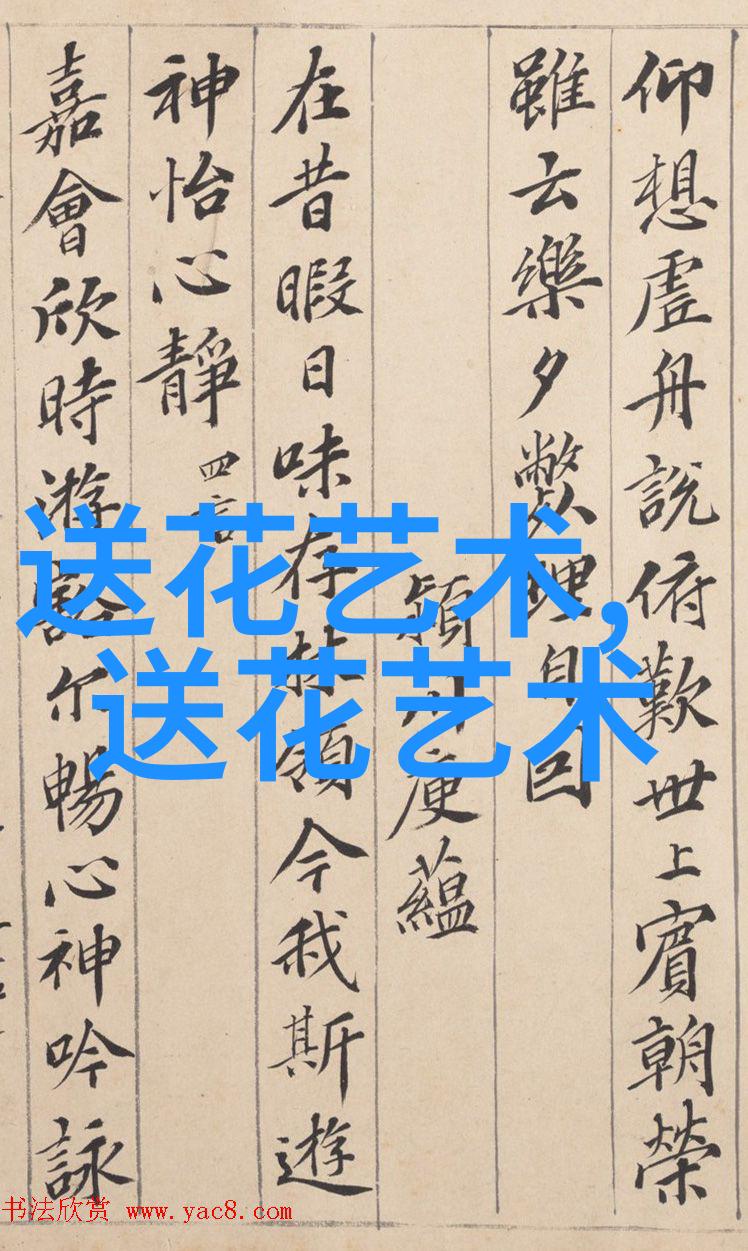 仰想虗舟說俯歎世上賓朝榮
雖云樂夕弊理自回
潁川庾蘊
在昔暇日味存林嶺今我斯遊
神怡心靜 四言
嘉會欣時游豁尔暢心神吟詠
送花艺术,
送花艺术
书法欣赏 www.yac8.com